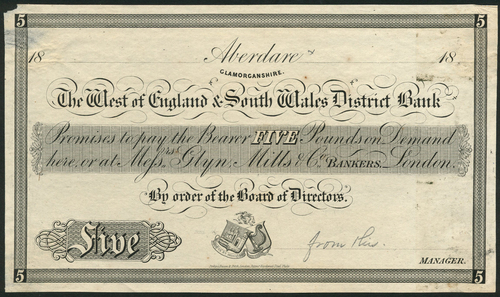 5 5
18 Aberdare 18
GLAMORGANSHIRE.
The West of England & South Wales District Bank
Promises to pay the Bearer FIVE Pounds on Demand
here or at Messrs. Glyn, Mills & Co. BANKERS, London.
By order of the Board of Directors.
Five
from
MANAGER.
5 5